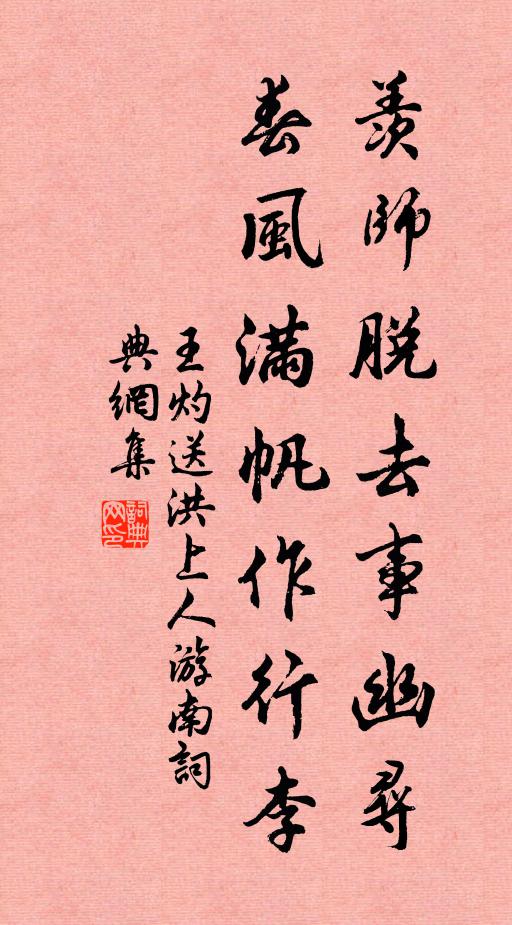 羡師脫去事幽尋
春風滿帆作行李
王灼送洪上人游南詞
典網集
詞典網印